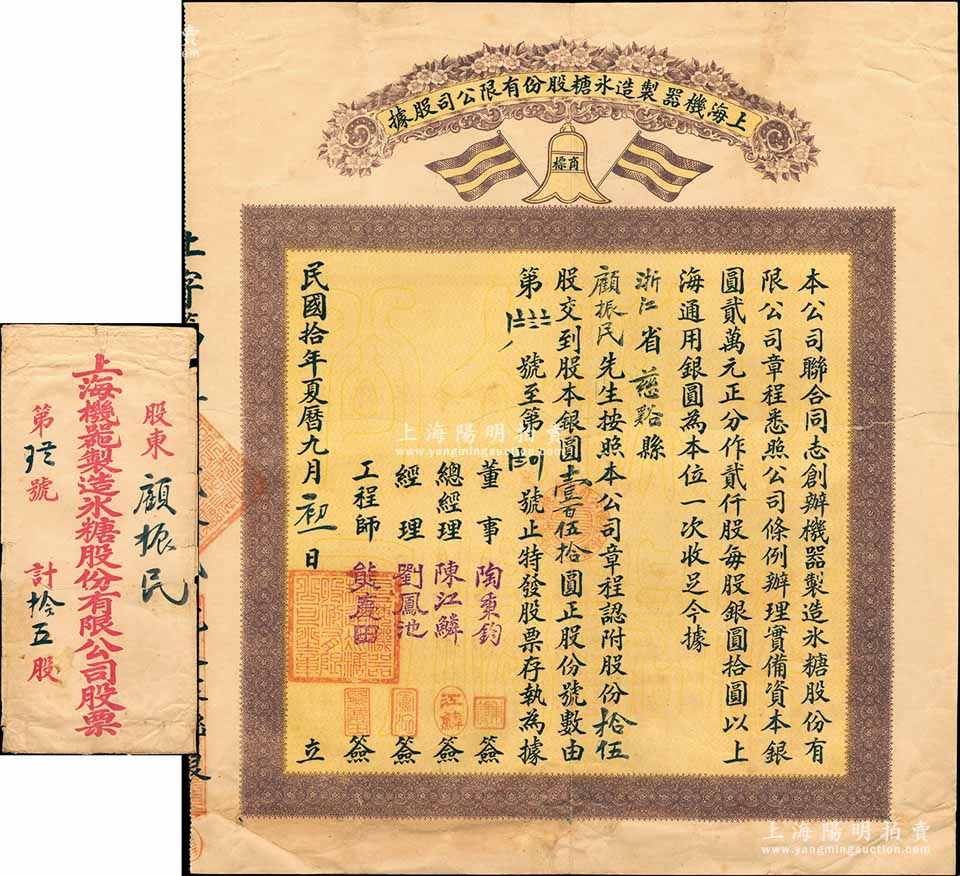 上海機器製造氷糖股份有限公司股據
商標
本公司聯合同志創辦機器製造氷糖股份有
限公司章程悉照公司條例辦理實備資本銀
圓貳萬元正分作貳仟股每股銀圓拾圓以上
海通用銀圓為本位一次收足今據
浙江省慈谿縣
顧振民先生按照本公司章程認附股份拾伍
股交到股本銀圓壹百伍拾圓正股份號數由
第號至第號止特發股票存執為據
董事 陶秉鈞 簽
總經理 陳江鱗 簽
經理 劉鳳池 簽
工程師 簽
民國拾年夏曆九月初一日 立
股東 顧振民
上海機器製造氷糖股份有限公司股票
第號 計拾五股
上海陽明拍賣
www.yangmingauction.com
上海陽明拍賣
www.yangmingauction.com